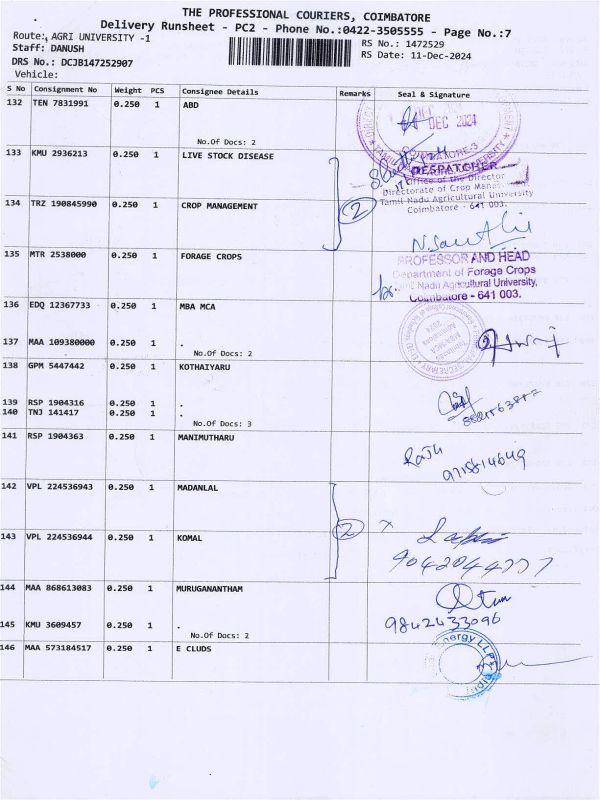 THE PROFESSIONAL COURIERS, COIMBATORE
Delivery Runsheet - PC2 - Phone No.:0422-3505555 - Page No.:7
Route: AGRI UNIVERSITY -1
RS No.: 1472529
Staff: DANUSH
RS Date: 11-Dec-2024
DRS No.: DCJB147252907
Vehicle:
S No Consignment No Weight PCS Consignee Details Remarks Seal & Signature
132 TEN 7831991 0.250 1 ABD
No.Of Docs: 2
DEC 2024
133 KMU 2936213 0.250 1 LIVE STOCK DISEASE
DESPATCHER
Office of the Director
Directorate of Crop Management
Tamil Nadu Agricultural University
Coimbatore - 641 003.
134 TRZ 190845990 0.250 1 CROP MANAGEMENT
2
135 MTR 2538000 0.250 1 FORAGE CROPS
PROFESSOR AND HEAD
Department of Forage Crops
Tamil Nadu Agricultural University,
Coimbatore - 641 003.
136 EDQ 12367733 0.250 1 MBA MCA
137 MAA 109380000 0.250 1 .
No.Of Docs: 2
138 GPM 5447442 0.250 1 KOTHAIYARU
139 RSP 1904316 0.250 1 .
140 TNJ 141417 0.250 1 .
No.Of Docs: 3
141 RSP 1904363 0.250 1 MANIMUTHARU
Raju
9715814649
142 VPL 224536943 0.250 1 MADANLAL
2
143 VPL 224536944 0.250 1 KOMAL
9042044777
144 MAA 868613083 0.250 1 MURUGANANTHAM
145 KMU 3609457 0.250 1 .
No.Of Docs: 2
9842433096
146 MAA 573184517 0.250 1 E CLUDS